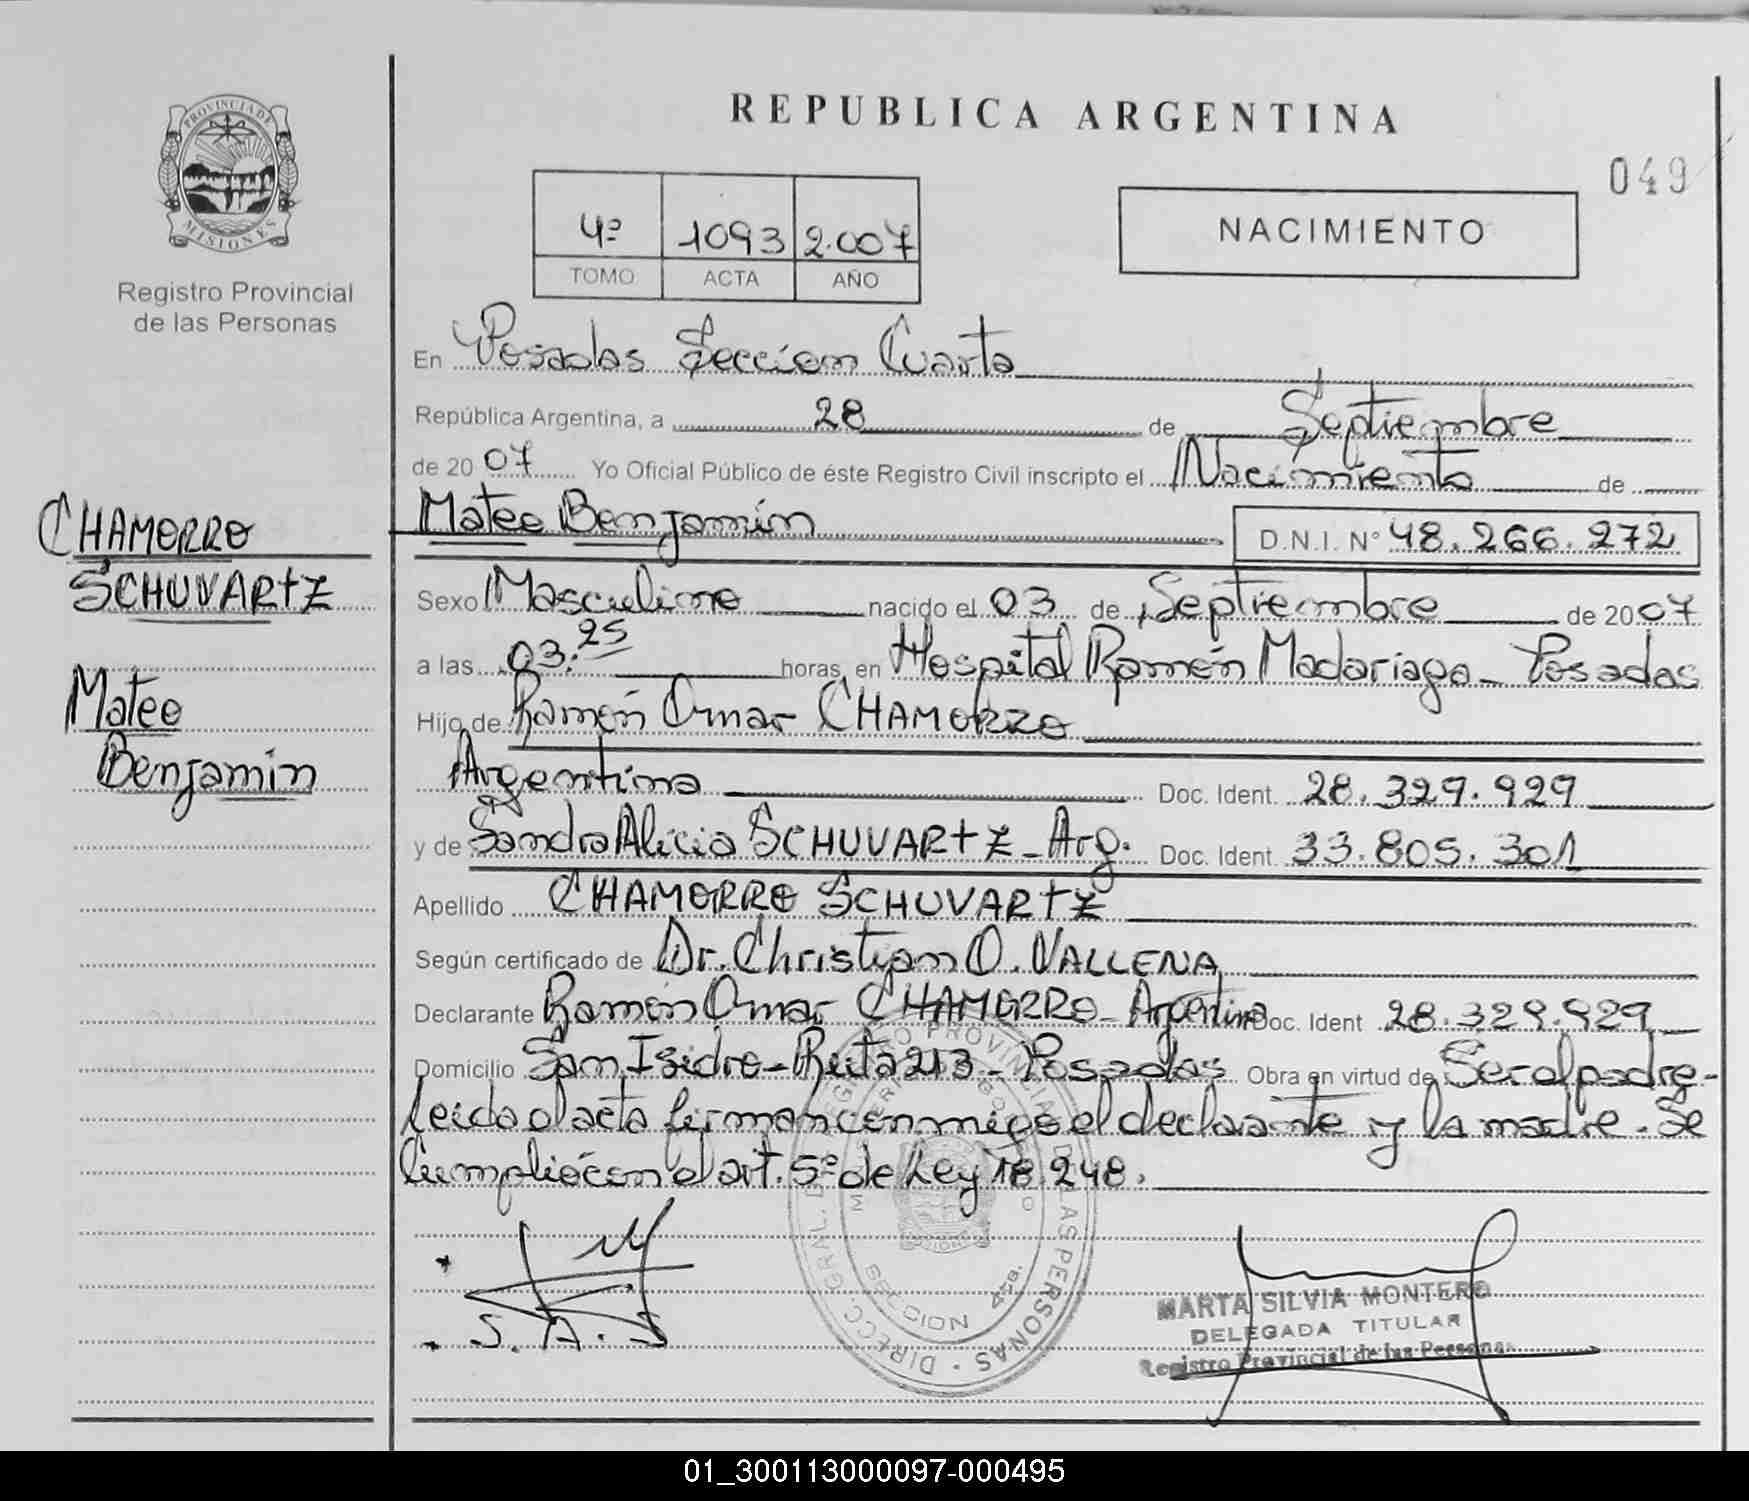 REPUBLICA ARGENTINA
049
PROVINCIA DE
MISIONES
Registro Provincial
de las Personas
4º 1093 2.007
TOMO ACTA AÑO
NACIMIENTO
En Posadas Sección Cuarta
República Argentina, a 28 de Septiembre
de 2007 Yo Oficial Público de éste Registro Civil inscripto el Nacimiento de
CHAMORRO
SCHUVARTZ
Mateo
Benjamín
Mateo Benjamín D.N.I. Nº 48.266.272
Sexo Masculino nacido el 03 de Septiembre de 2007
a las 03:25 horas, en Hospital Ramón Madariaga - Posadas
Hijo de Ramón Omar CHAMORRO
Argentina Doc. Ident. 28.329.929
y de Sandra Alicia SCHUVARTZ - Arg. Doc. Ident. 33.805.301
Apellido CHAMORRO SCHUVARTZ
Según certificado de Dr. Christian O. VALLENA
Declarante Ramón Omar CHAMORRO - Argentino Doc. Ident 28.329.929
Domicilio San Isidro - Ruta 213 - Posadas Obra en virtud de Ser el padre -
Leída el acta firman conmigo el declarante y la madre. Se
Cumplió con el art. 5º de Ley 18.248.
S. A. S
DIRECC. GRAL. DE REGISTRO PROVINCIAL DE LAS PERSONAS
SECCION 4ta.
MISIONES
MARTA SILVIA MONTERO
DELEGADA TITULAR
Registro Provincial de las Personas
01_300113000097-000495